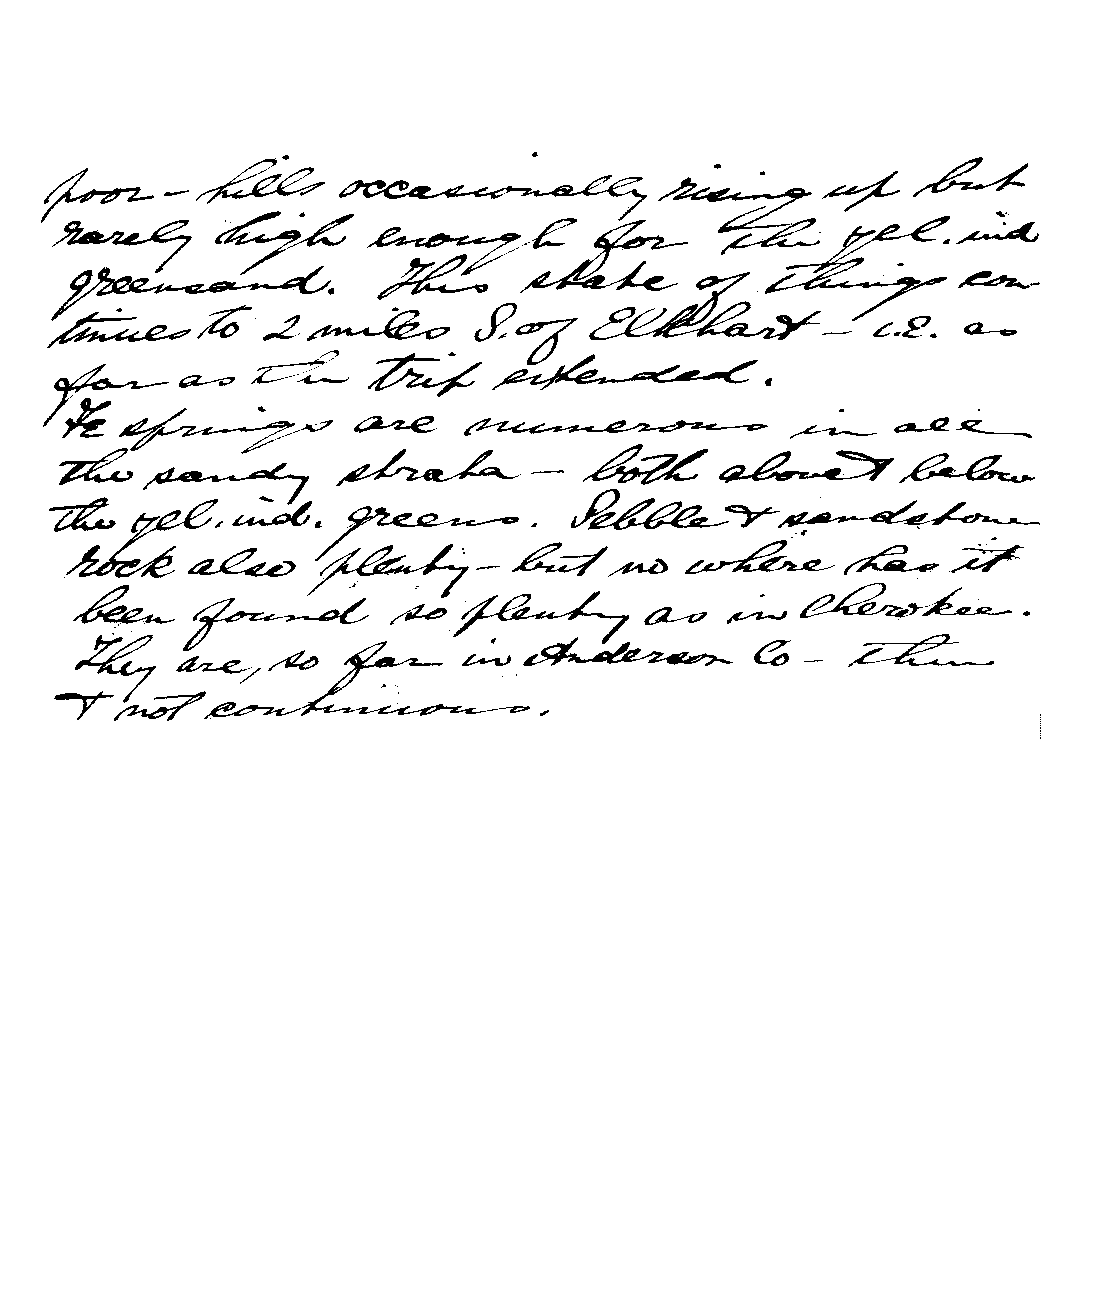 poor – hills occasionally rising up but
rarely high enough for the yel. ind
greensand. This state of things con-
tinues to 2 miles S. of Elkhart – i.e. as
far as the trip extended.
Fe springs are numerous in all
the sandy strata – both above & below
the yel. ind. greens. Pebble & sandstone
rock also plenty – but no where has it
been found so plenty as in Cherokee.
They are, so far in Anderson Co – thin
& not continuous.